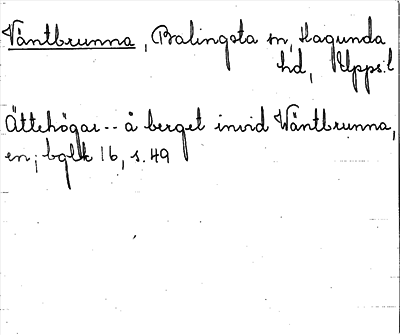 Våntbrunna, Balingsta sn, Hagunda
hd, Upps. l
Ättehögar -- å berget invid Wåntbrunna,
en; bglk 16, s. 49